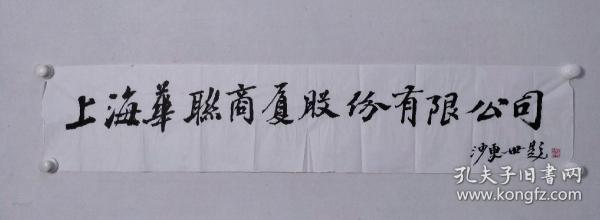 上海華聯商厦股份有限公司
沙曼世題
孔夫子旧书网
kongfz.com